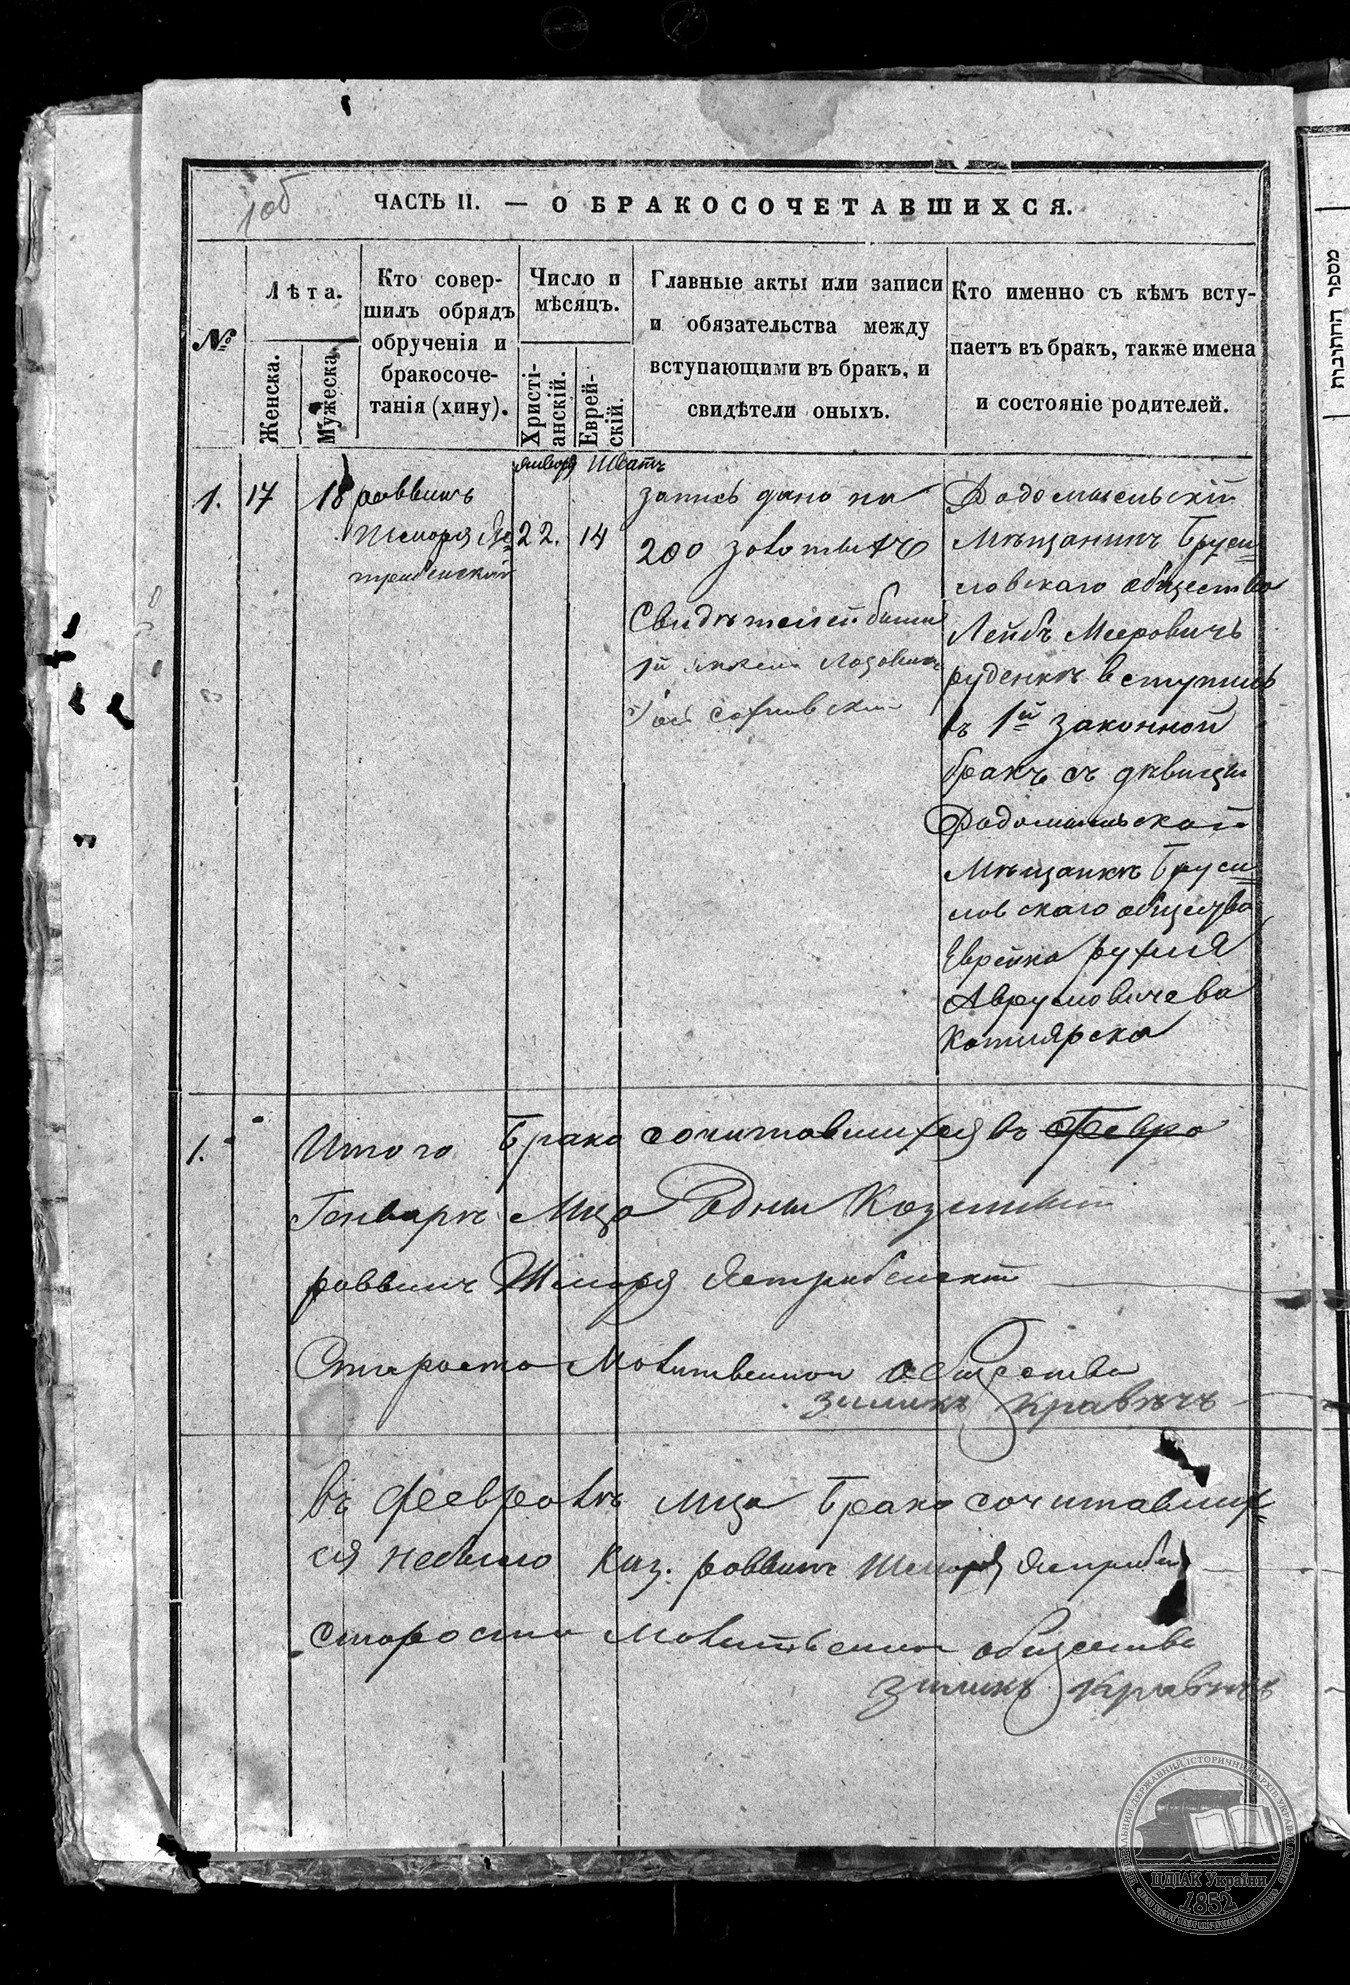 1об
ЧАСТЬ II. — О БРАКОСОЧЕТАВШИХСЯ.
№
Лѣта.
Женска.
Мужеска.
Кто совер-
шилъ обрядъ
обрученія и
бракосоче-
танія (хипу).
Число и
мѣсяцъ.
Христі-
анскій.
Еврей-
скій.
Главные акты или записи
и обязательства между
вступающими въ бракъ, и
свидѣтели оныхъ.
Кто именно съ кѣмъ всту-
паетъ въ бракъ, также имена
и состояніе родителей.
1.
17
18
раввинъ
Шмаря Яс-
трибенский
января
22.
Шватъ
14
запись дано на
200 золотыхъ
Свидѣтелей были
1й
Радомысльскій
Мѣщанинъ Бруси-
ловскаго общества
Лейбъ Мееровичъ
руденкъ вступилъ
въ 1й законной
бракъ съ дѣвицы
Радомысльской
Мѣщанкѣ Бруси-
ловскаго общества
Еврейка рухля
Аврумовичева
Котлярска
1.
Итого Брако сочитавшихся въ Февра
Генварѣ Мца Одны Казенный
раввинъ Шмаря Ястрибенский
Староста Молитвенной общества
зиликъ Кравецъ
въ Февралѣ мца Брако сочитавших-
ся небыло Каз. раввинъ Шмаря Ястрибен
Староста Молитвенной общества
зиликъ Кравецъ
מספר החתונות
ЦЕНТРАЛЬНИЙ ДЕРЖАВНИЙ ІСТОРИЧНИЙ АРХІВ УКРАЇНИ
ЦДІАК України
1852